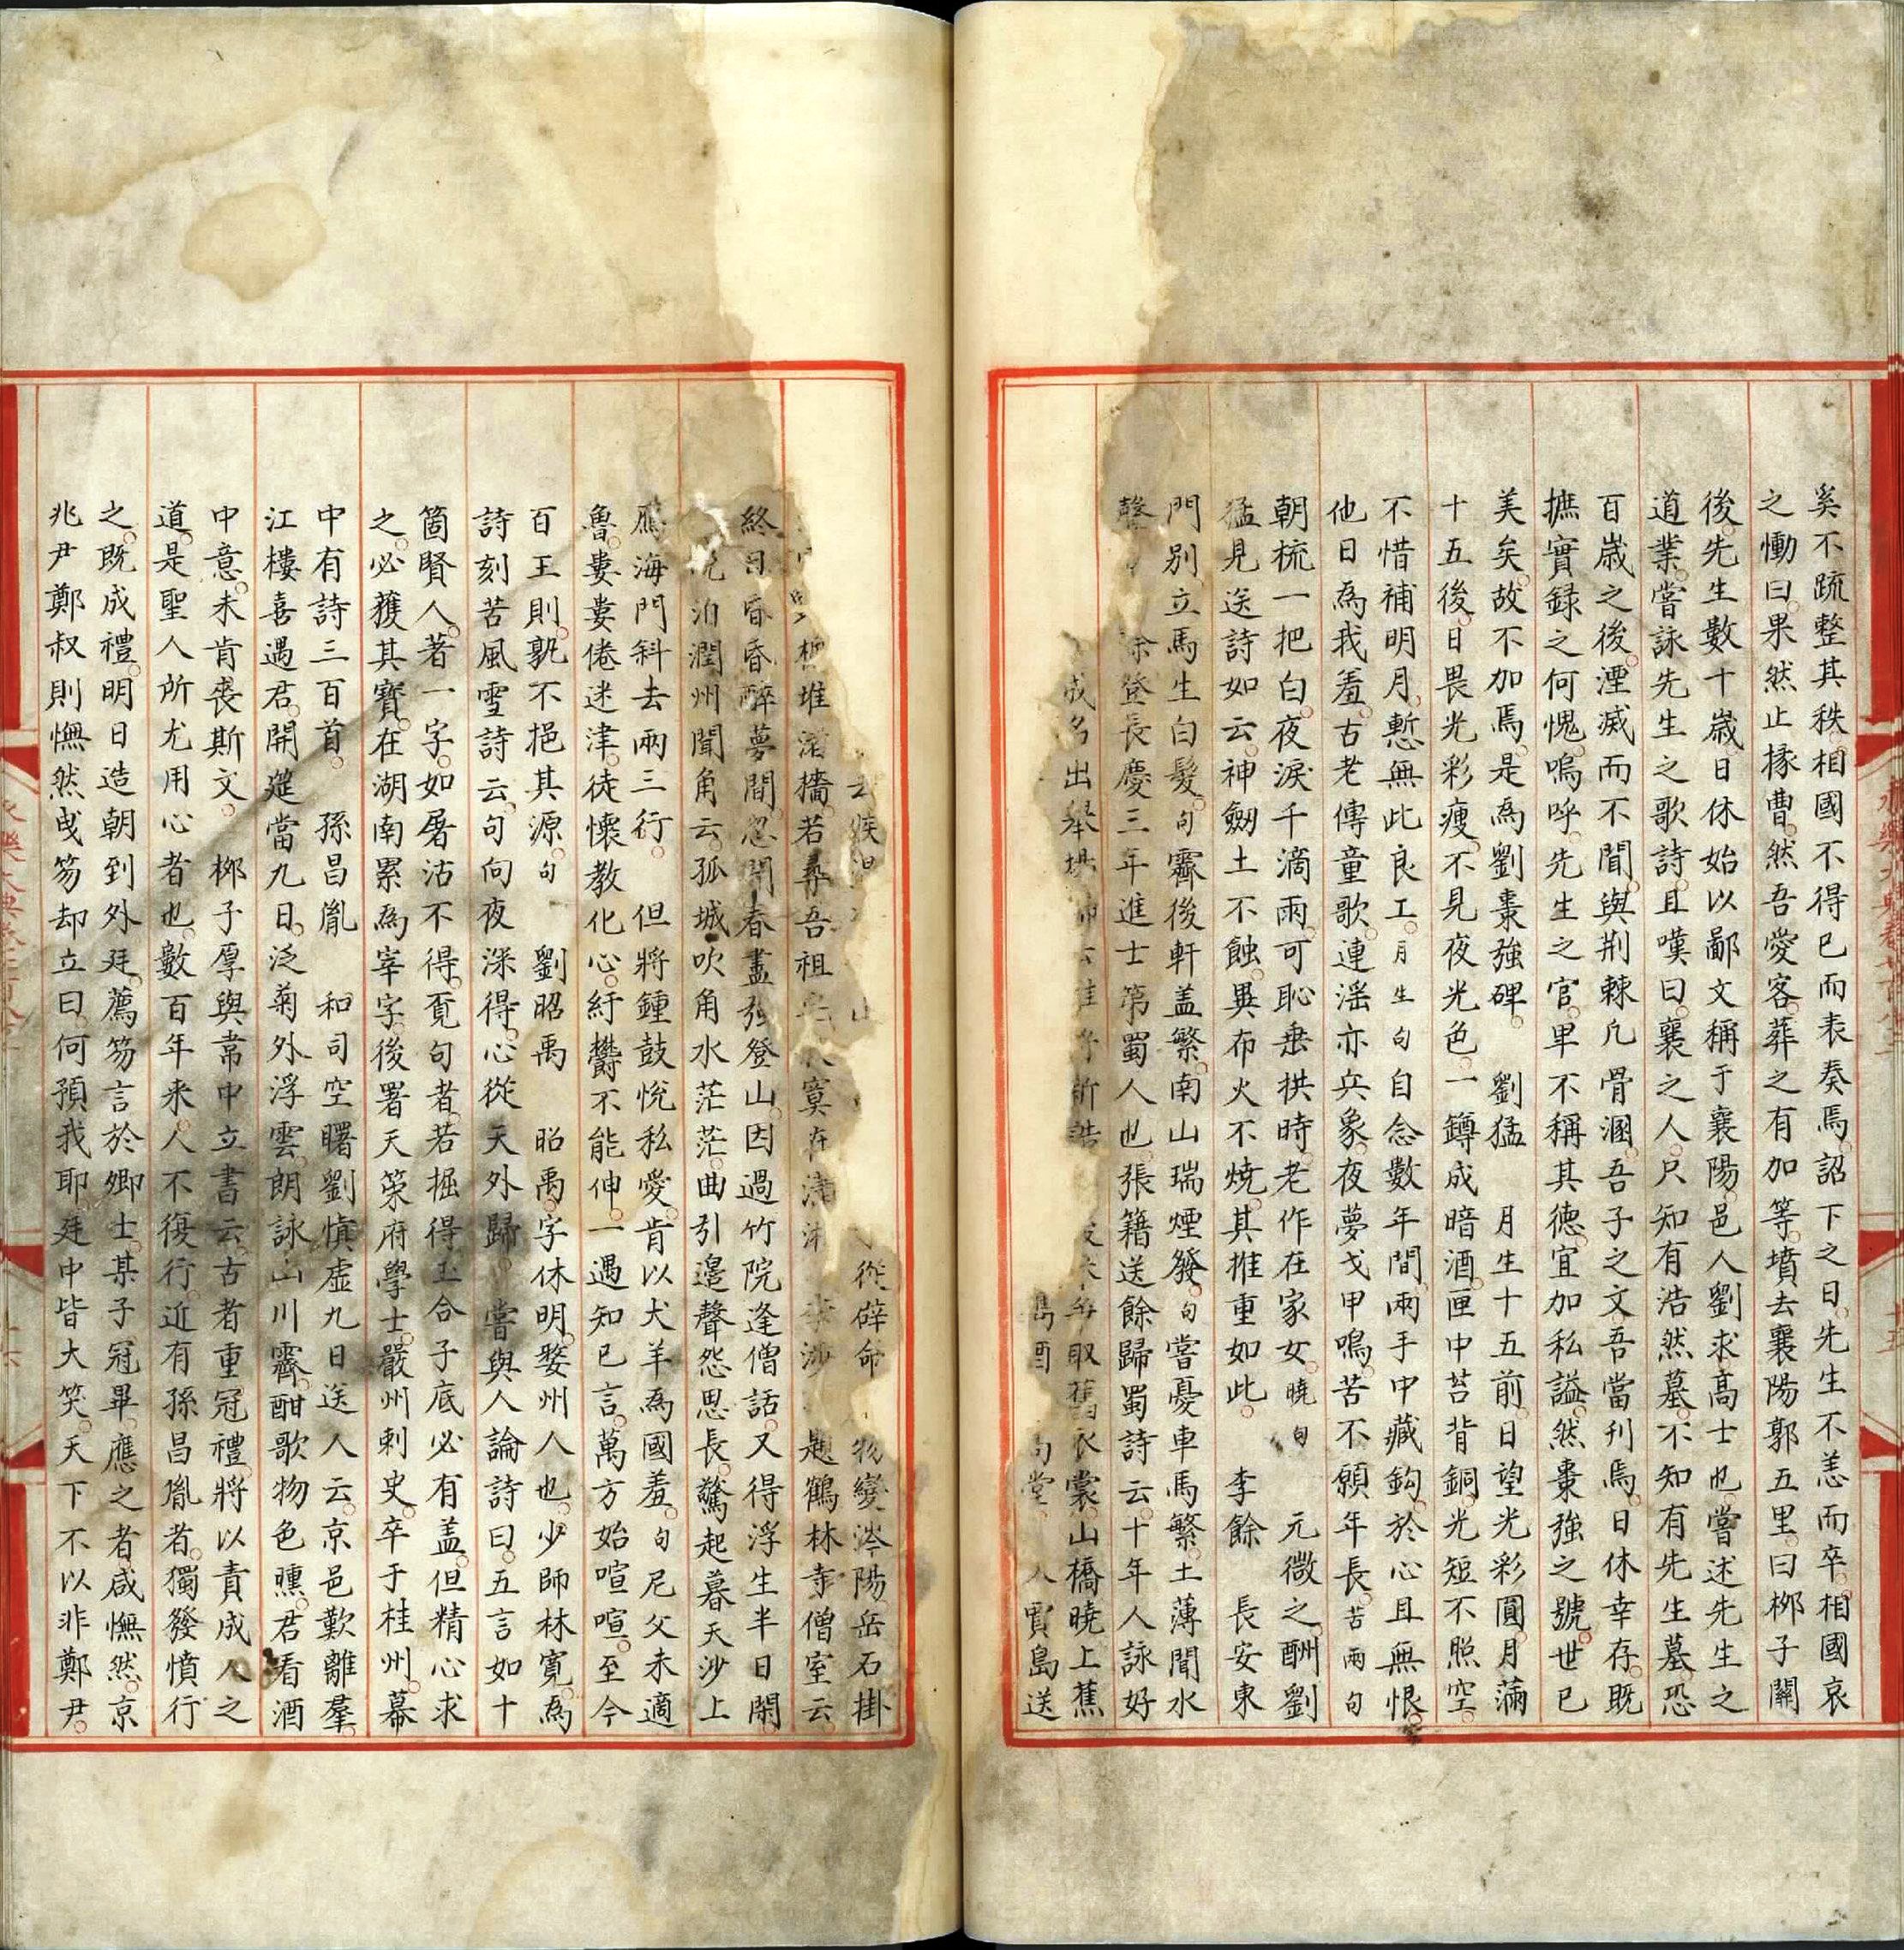 奚不疏整其秩相國不得已而表奏焉詔下之日先生不恙而卒相國哀
之慟曰果然止掾曹然吾愛客葬之有加等墳去襄陽郭五里曰柳子關
後先生數十歲日休始以鄙文稱于襄陽邑人劉求高士也嘗述先生之
道業嘗詠先生之歌詩且嘆曰襄之人只知有浩然墓不知有先生墓恐
百歲之後湮滅而不聞與荆棘凡骨溷吾子之文吾當刊焉日休幸存既
摭實録之何愧嗚呼先生之官卑不稱其德宜加私謚然棗強之號世已
美矣故不加焉是為劉棗強碑 劉猛 月生十五前日望光彩圓月滿
十五後日畏光彩瘦不見夜光色一鐏成暗酒匣中苔背銅光短不照空
不惜補明月慙無此良工月生句自念數年間兩手中藏鈎於心且無恨
他日為我羞古老傳童歌連滛亦兵象夜夢戈甲鳴苦不願年長苦雨句
朝梳一把白夜淚千滴雨可恥垂拱時老作在家女曉句 元微之酬劉
猛見送詩如云神劒土不蝕異布火不燒其推重如此 李餘 長安東
門別立馬生白髪句霽後軒盖繁南山瑞煙發句嘗憂車馬繁土薄聞水
聲 餘登長慶三年進士第蜀人也張籍送餘歸蜀詩云十年人詠好
成名出舉 新誥 取舊衣裳山橋曉上蕉
島酒 堂 人賈島送
從辟命 物變涔陽岳石掛
堆 檣若尋吾祖 寞在 題鶴林寺僧室云
終日昏昏醉夢間忽聞春盡強登山因過竹院逢僧話又得浮生半日閑
泊潤州聞角云孤城吹角水茫茫曲引邉聲怨思長驚起暮天沙上
鴈海門斜去兩三行 但將鍾鼓悅私愛肯以犬羊為國羞句尼父未適
魯婁婁倦迷津徒懷教化心紆欝不能伸一遇知已言萬方始喧喧至今
百王則孰不挹其源句 劉昭禹 昭禹字休明婺州人也少師林寛為
詩刻苦風雪詩云句向夜深得心從天外歸 嘗與人論詩曰五言如十
箇賢人著一字如屠沽不得覔句者若掘得玉合子底必有盖但精心求
之必獲其寳在湖南累為宰字後署天策府學士嚴州刺史卒于桂州幕
中有詩三百首 孫昌胤 和司空曙劉愼虛九日送人云京邑歎離羣
江樓喜遇君開筵當九日泛菊外浮雲朗詠山川霽酣歌物色曛君看酒
中意未肯䘮斯文 柳子厚與韋中立書云古者重冠禮將以責成人之
道是聖人所尤用心者也數百年来人不復行近有孫昌胤者獨發憤行
之既成禮明日造朝到外廷薦笏言於卿士某子冠畢應之者咸憮然京
兆尹鄭叔則憮然曵笏却立曰何預我耶廷中皆大笑天下不以非鄭尹